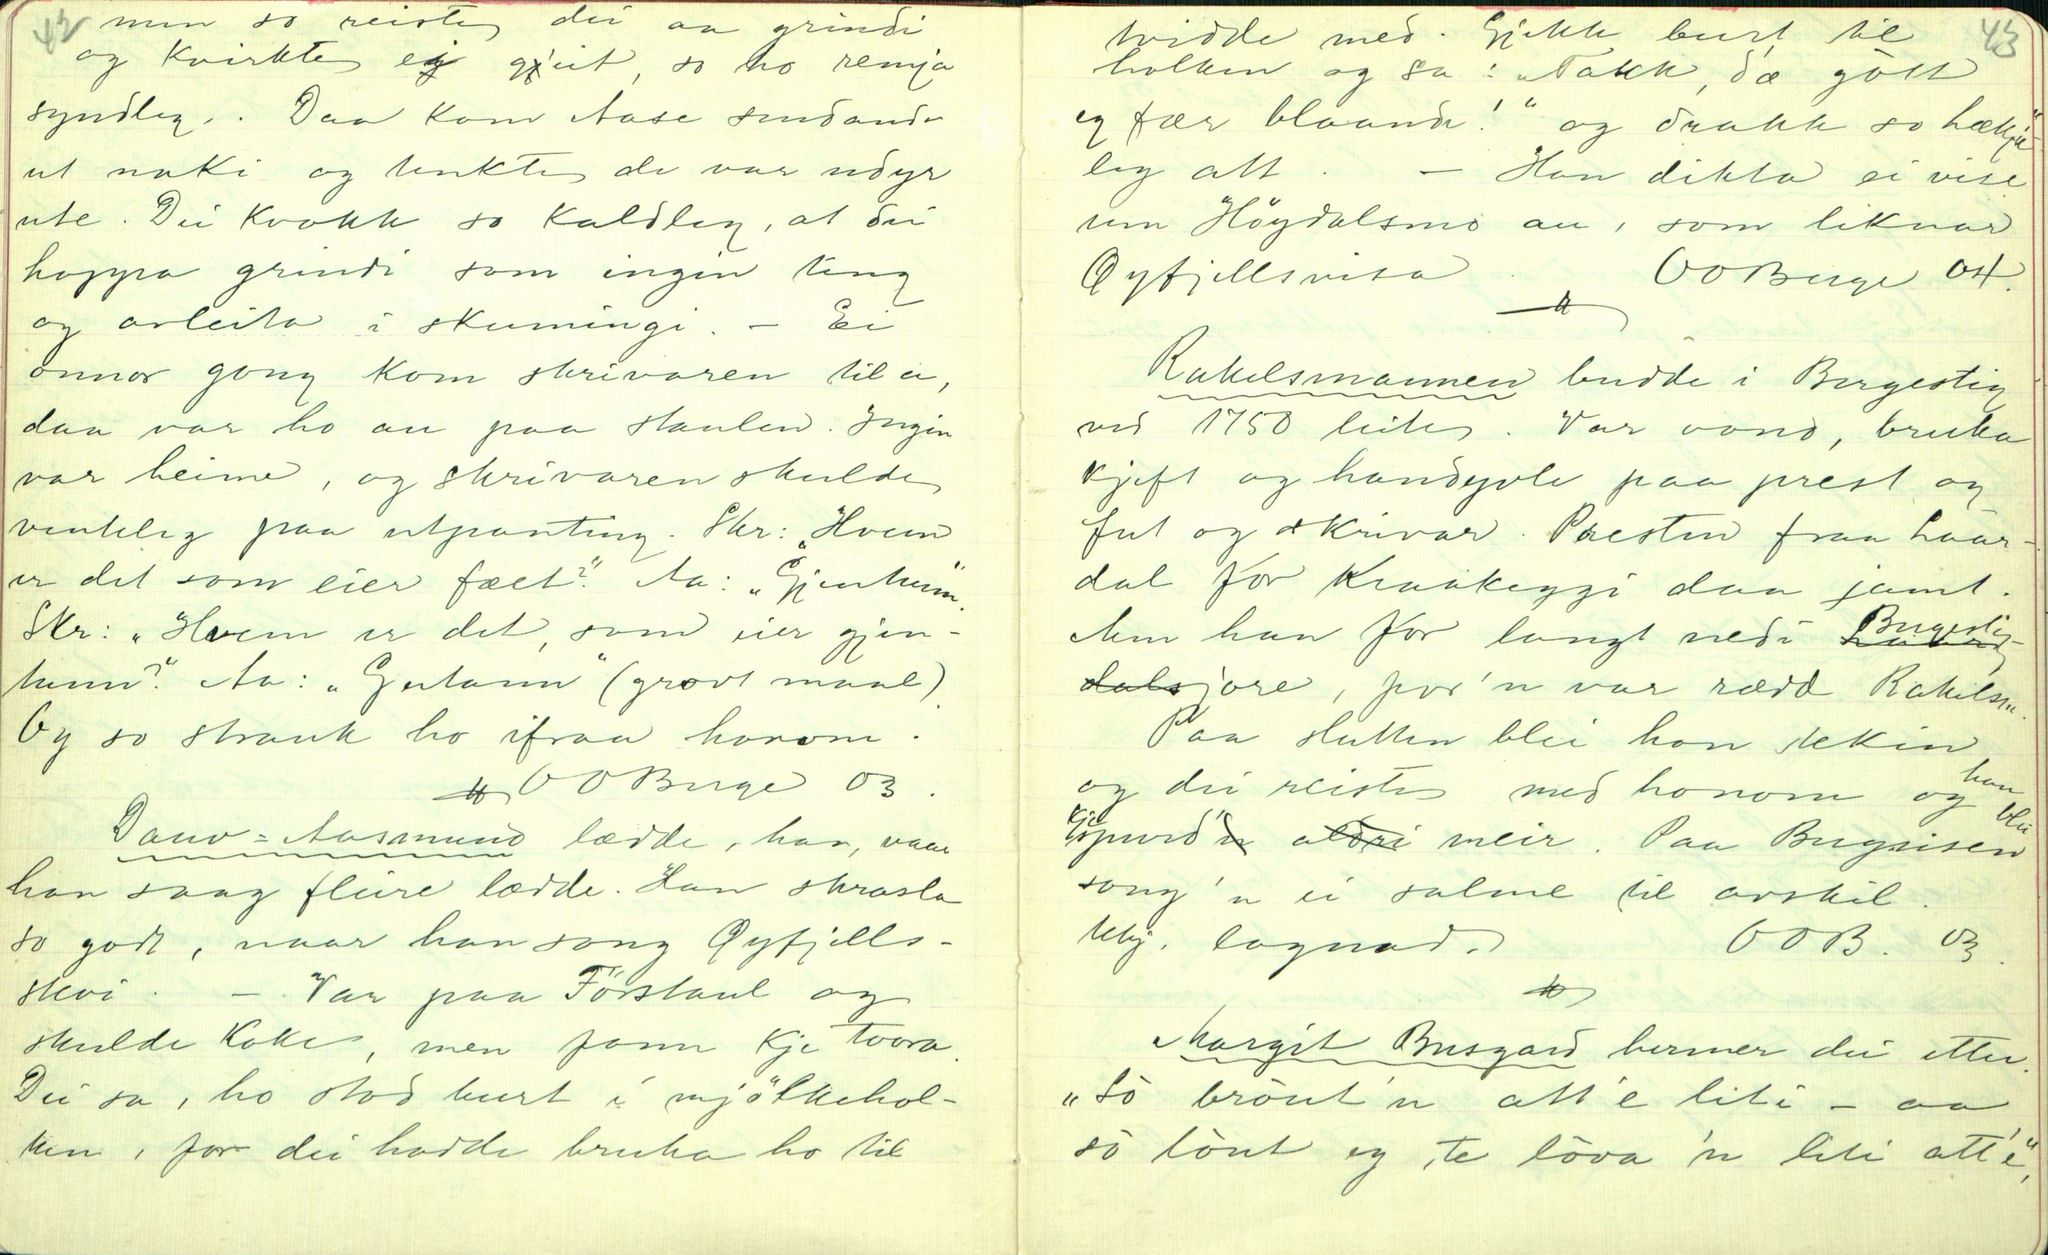 42
men so reiste dei aa grindi
og kvirkte ei gjeit, so ho remja
syndleg. Daa kom Aase sendand
ut naki og tenkte de var udyr
ute. Dei kvokk so kaldleg, at dei
hoppa grindi som ingin ting
og arleita i skumingi. — Ei
onnor gong kom skrivaren til a,
daa var ho au paa staulen. Ingin
var heime, og skrivaren skulde
venteleg paa utpanting. Skr: „Hvem
er det som eier fæet?" Aa: „Gjentunn".
Skr: „Hvem er det, som eier gjen-
tunn?" Aa: „Gutann" (grovt maal)
Og so strauk ho ifraa honom.
O O Berge 03.
Dauv-Aasmund lædde, han, naar
han saag fleire lædde. Han skrasla
so godt, naar han song Øyfjells-
stevi. — Var paa Förstaul og
skulde koke, men fann kje tvora.
Dei sa, ho stod burt i mjölkehol-
ken, for dei hadde bruka ho til
43
hidde med. Gjekk burt til
holken og sa: „Takk, dæ gòtt
eg fær blaand!" og drakk so hækje-
leg att. — Han dikta ei vise
um Höydalsmo au, som liknar
Øyfjellsvisa. O O Berge 04.
Rakelsmannen budde i Bergestig
ved 1750 leite. Var vond, bruka
kjeft og handgvle paa prest og
fut og skrivar. Presten fraa Laar-
dal for Kraakeggi daa jamt.
Men han for langt nedi Bergestig-
jore, for 'n var rædd Rakelsm.
Paa slutten blei han tekin
og dei reiste med honom og han blei
kje spurd meir. Paa Bergsisen
song 'n ei salme til avskil.
Tekj. lagnad. O O B. 03.
Margit Busgard hermer dei etter.
„Sò brònt 'n att'e liti — aa
sò lònt eg, te lòva 'n liti att'e",